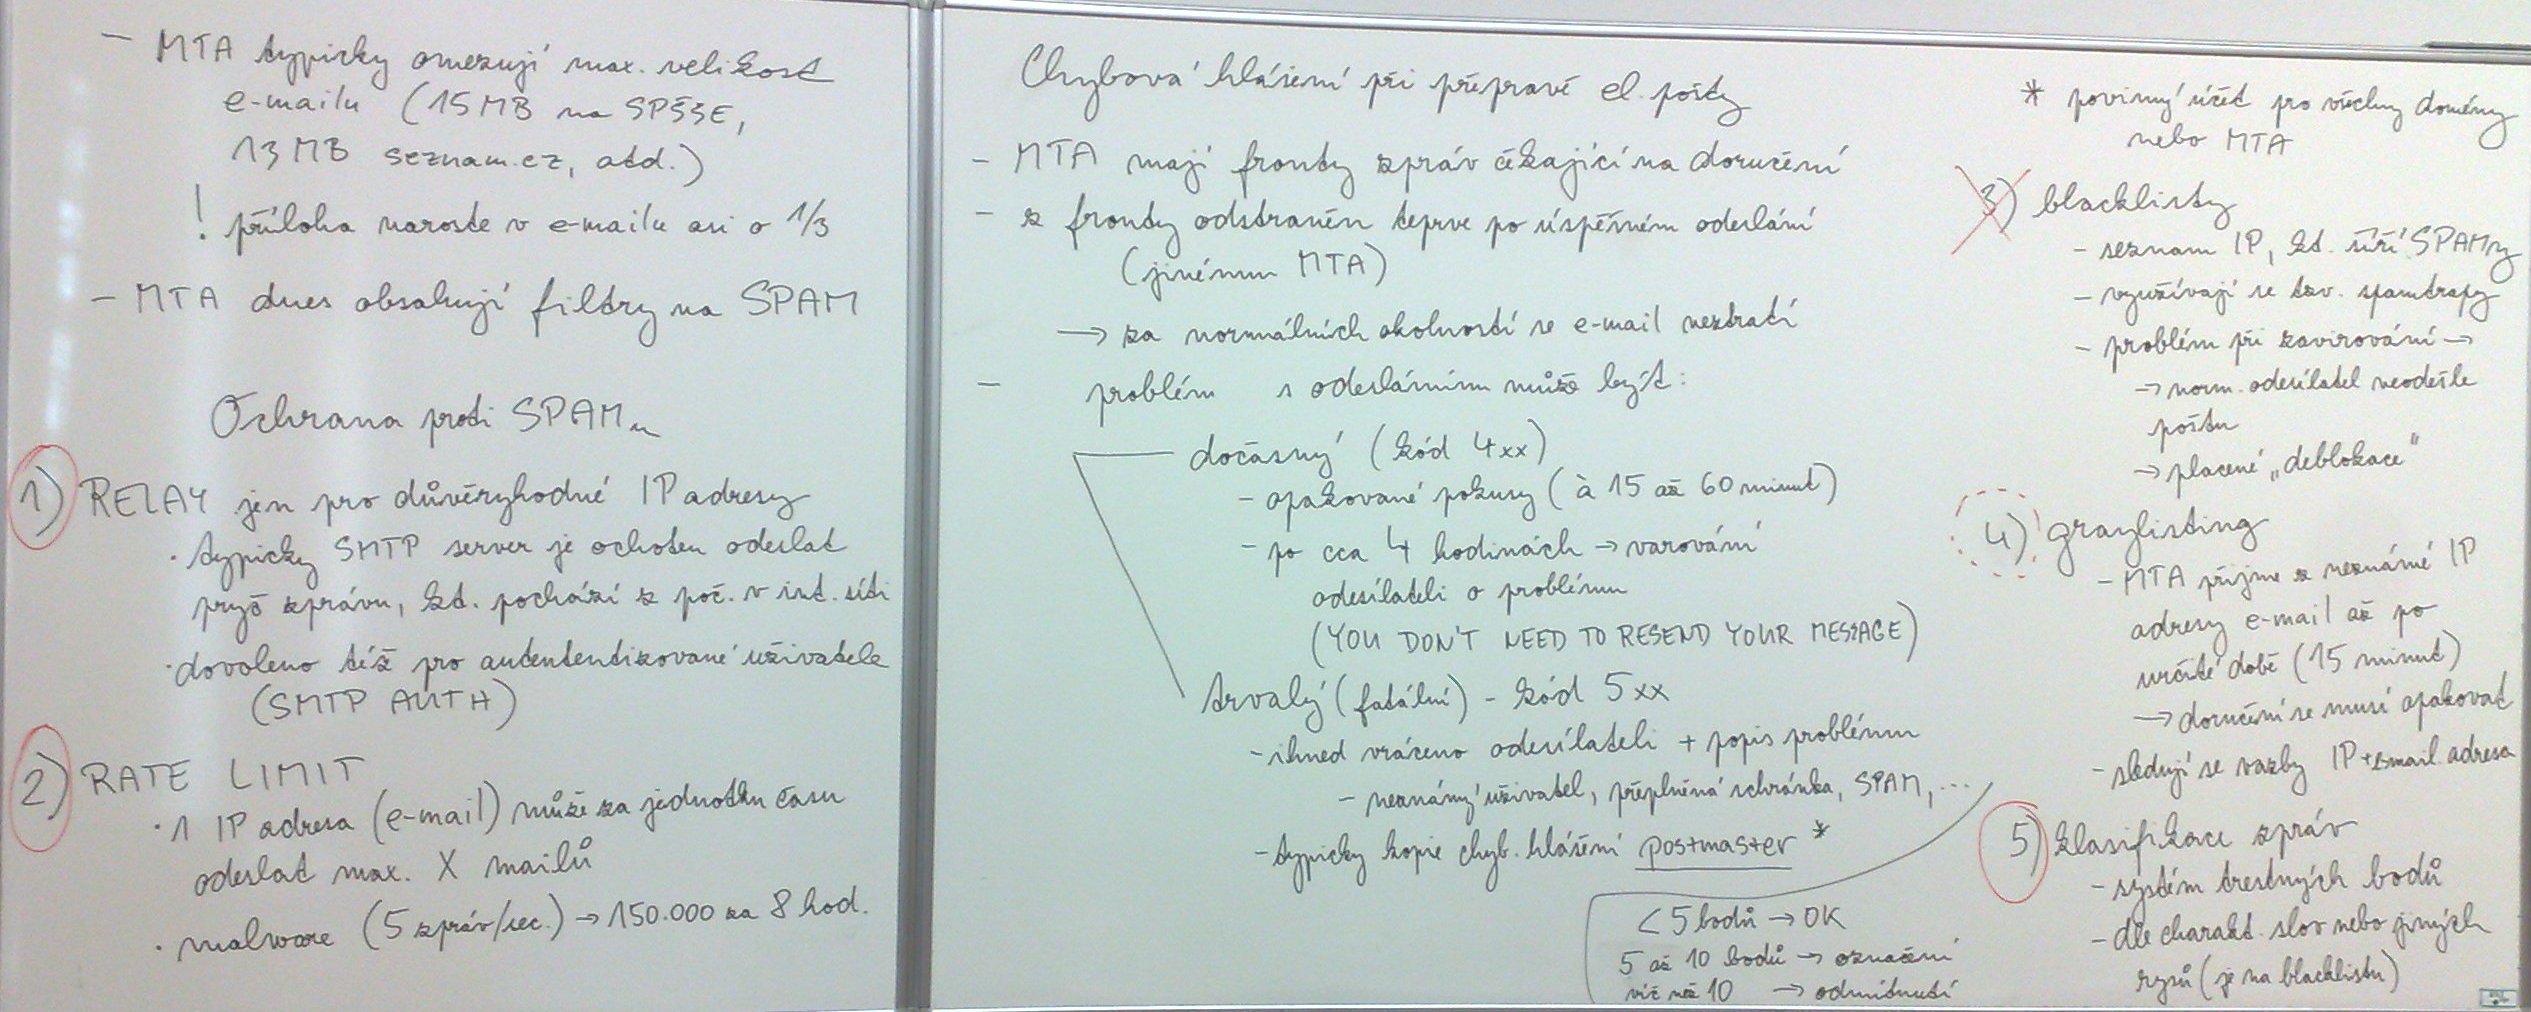 - MTA typicky omezují max. velikost
e-mailu (15 MB na SPŠSE,
13 MB seznam.cz, atd.)
! příloha naroste v e-mailu asi o 1/3
- MTA dnes obsahují filtry na SPAM
Ochrana proti SPAMu
1) RELAY jen pro důvěryhodné IP adresy
· typicky SMTP server je ochoten odeslat
pryč zprávu, kt. pochází z poč. v int. síti
· dovoleno též pro autententizované uživatele
(SMTP AUTH)
2) RATE LIMIT
· 1 IP adresa (e-mail) může za jednotku času
odeslat max. X mailů
· malware (5 zpráv/sec.) → 150.000 za 8 hod.
Chybová hlášení při přepravě el. pošty
- MTA mají fronty zpráv čekající na doručení
- z fronty odstraněn teprve po úspěšném odeslání
(jinému MTA)
→ za normálních okolností se e-mail neztratí
- problém s odesláním může být:
dočasný (kód 4xx)
- opakované pokusy (à 15 až 60 minut)
- po cca 4 hodinách → varování
odesílateli o problému
(YOU DON'T NEED TO RESEND YOUR MESSAGE)
trvalý (fatální) - kód 5xx
- ihned vráceno odesílateli + popis problému
- neznámý uživatel, přeplněná schránka, SPAM, ...
- typicky kopie chyb. hlášení postmaster *
< 5 bodů → OK
5 až 10 bodů → označení
víc než 10 → odmítnutí
* povinný účet pro všechny domény
nebo MTA
3) blacklisty
- seznam IP, kt. šíří SPAMy
- využívají se tzv. spamtrapy
- problém při zavirování →
→ norm. odesílatel neodešle
poštu
→ placené „deblokace"
4) graylisting
- MTA přijme z neznámé IP
adresy e-mail až po
určité době (15 minut)
→ doručení se musí opakovat
- sledují se vazby IP + email. adresa
5) klasifikace zpráv
- systém trestných bodů
- dle charakt. slov nebo jiných
rysů (je na blacklistu)